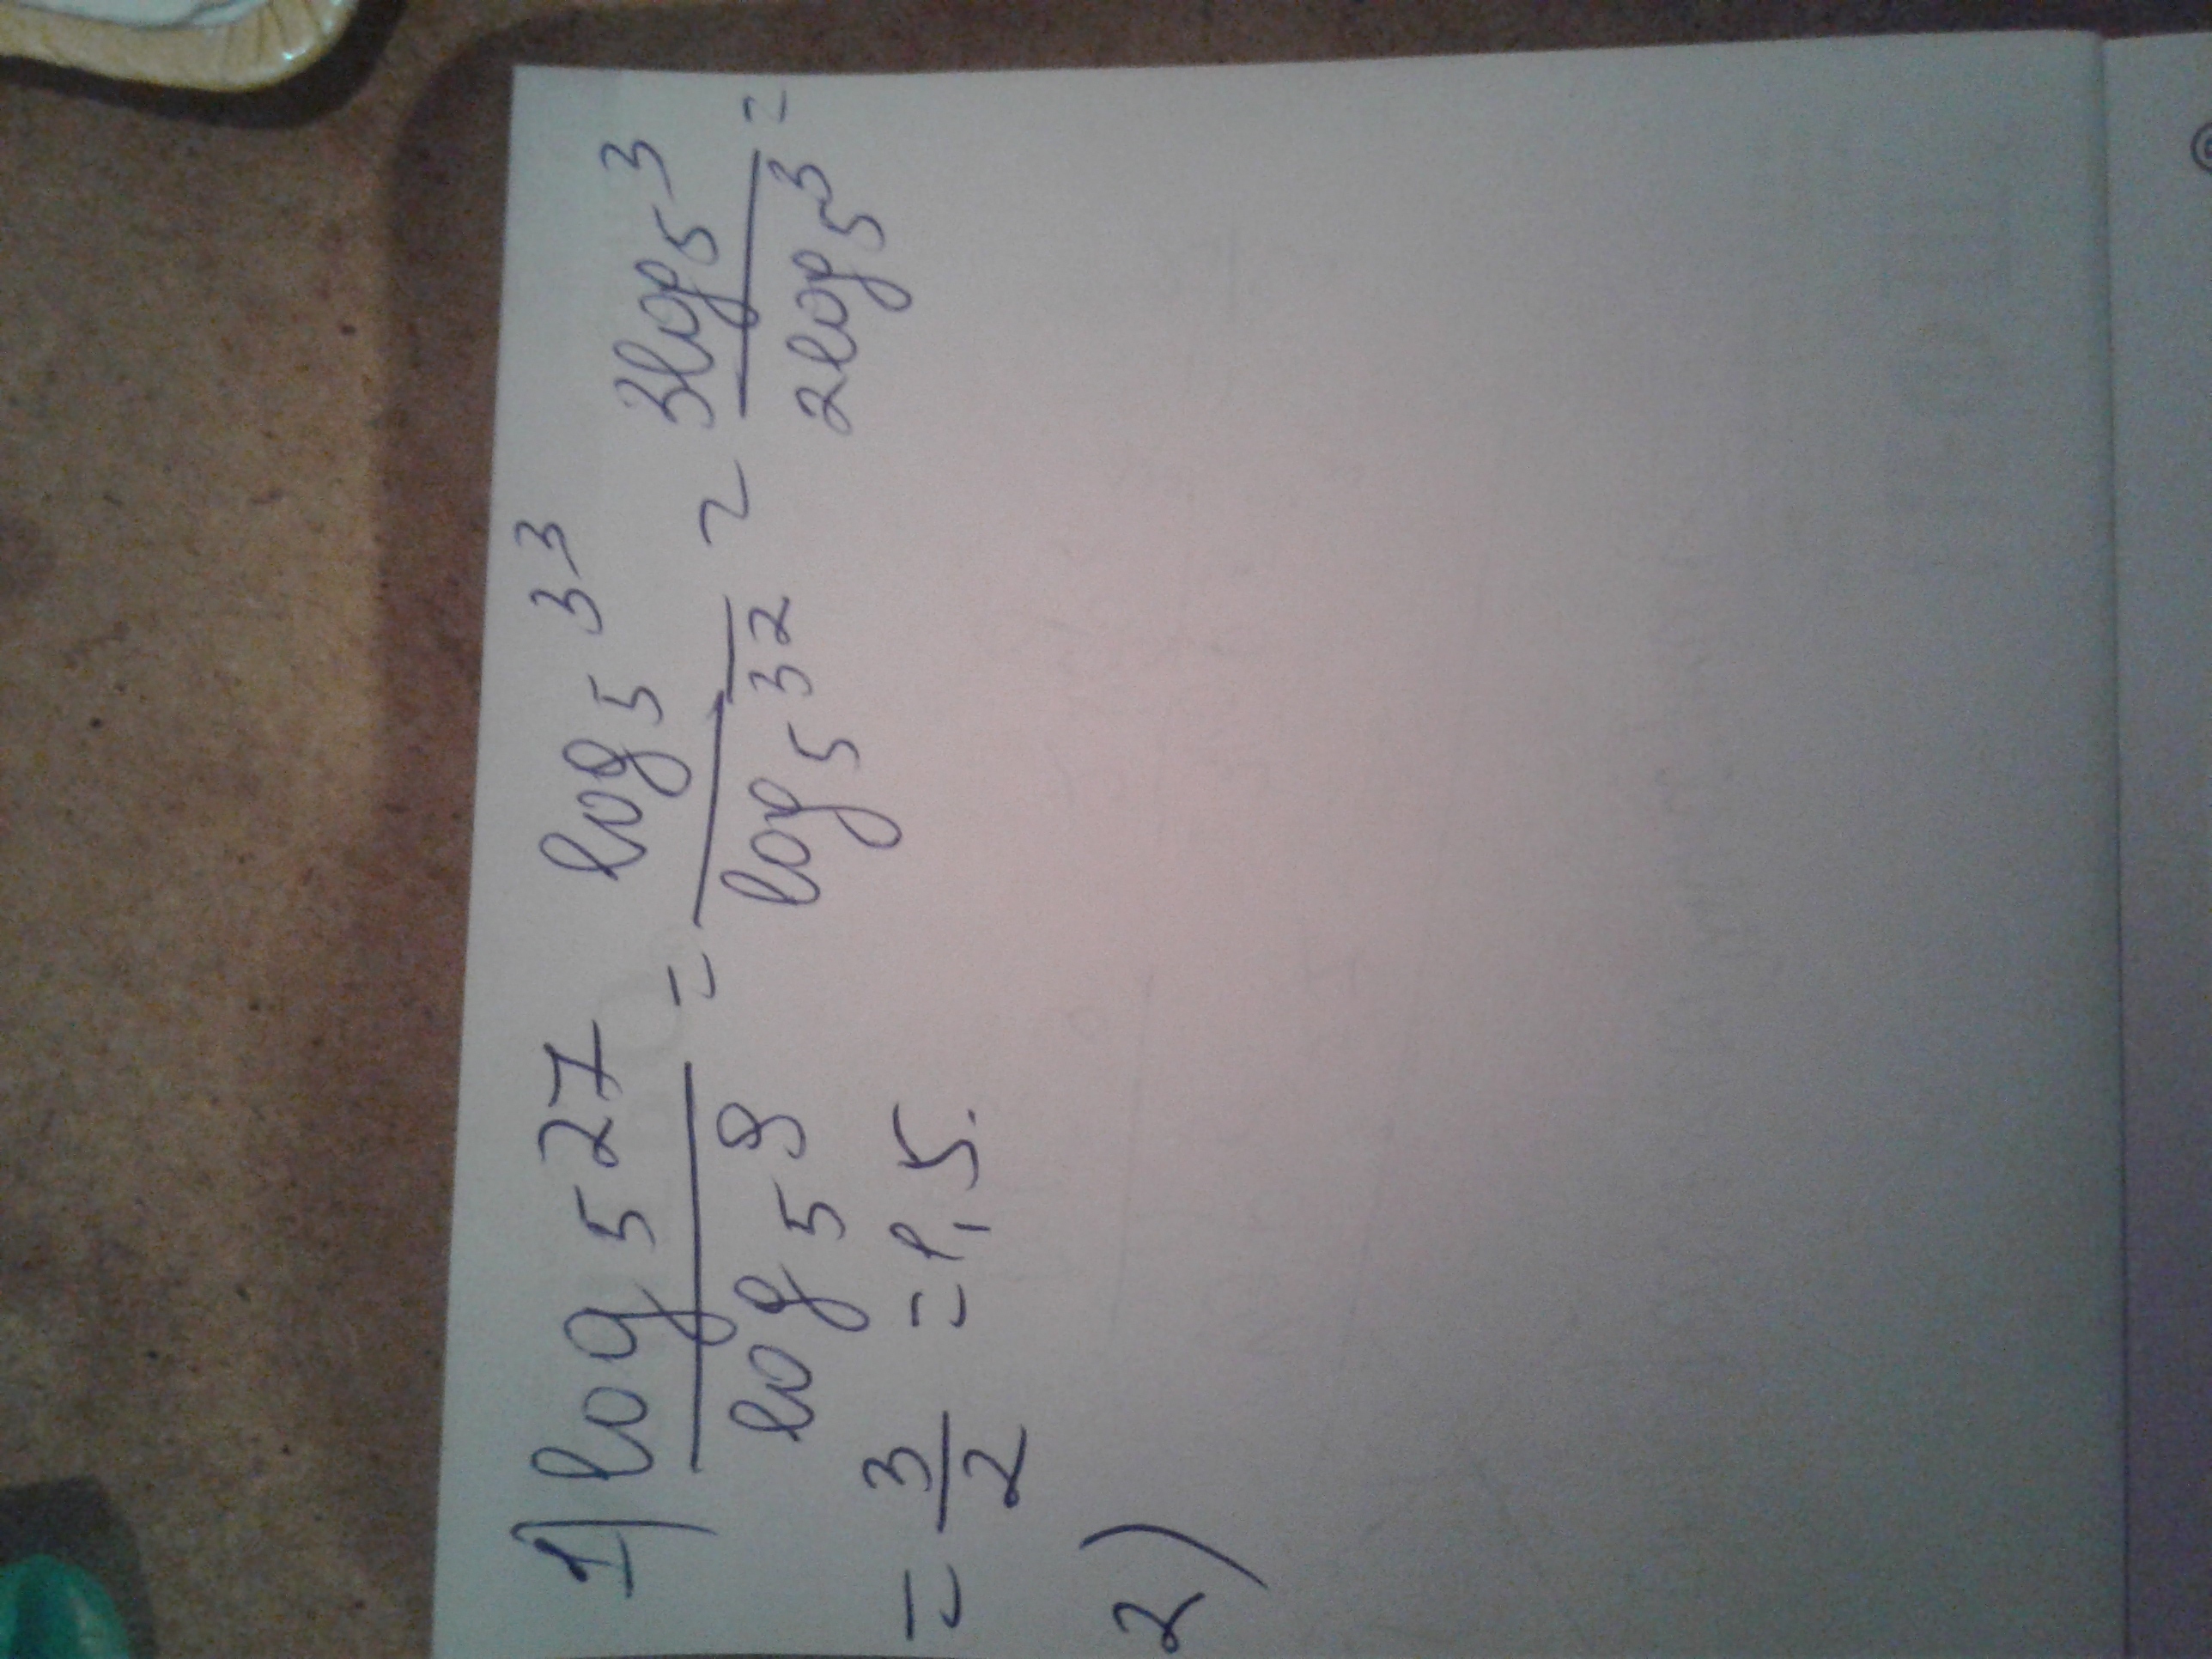 1) log₅27/log₅9 = log₅3³/log₅3² = 3log₅3/2log₅3 =
= 3/2 = 1,5.
2)